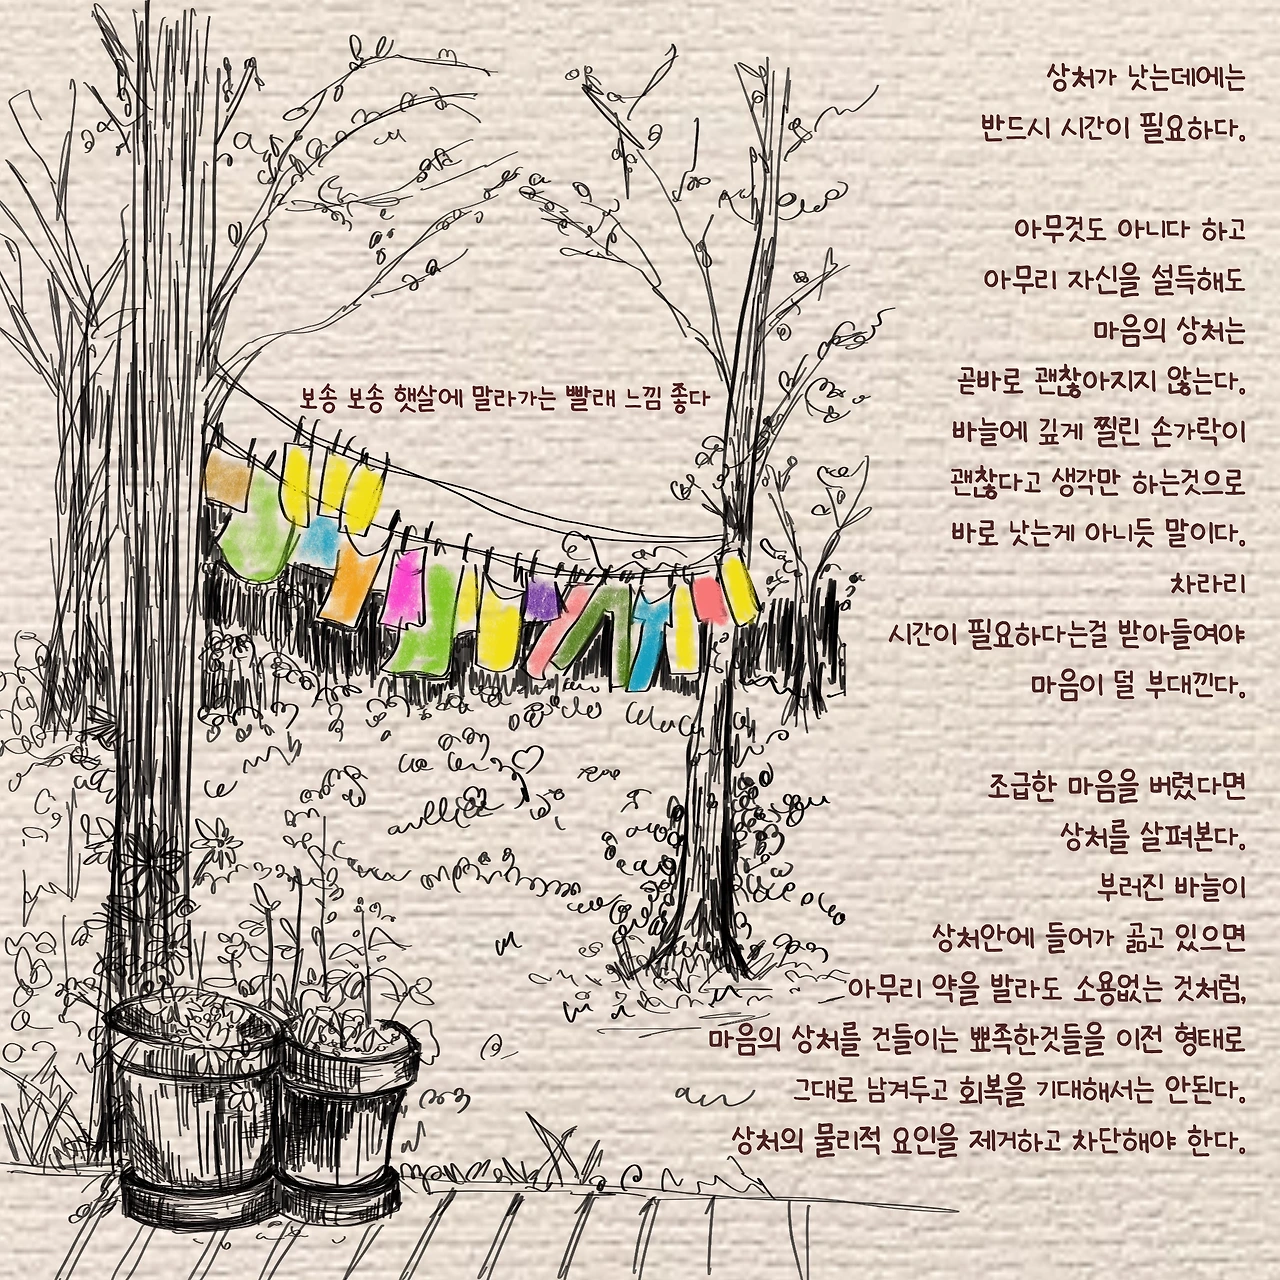 상처가 낫는데에는
반드시 시간이 필요하다.
아무것도 아니다 하고
아무리 자신을 설득해도
마음의 상처는
곧바로 괜찮아지지 않는다.
바늘에 깊게 찔린 손가락이
괜찮다고 생각만 하는것으로
바로 낫는게 아니듯 말이다.
차라리
시간이 필요하다는걸 받아들여야
마음이 덜 부대낀다.
조급한 마음을 버렸다면
상처를 살펴본다.
부러진 바늘이
상처안에 들어가 곪고 있으면
아무리 약을 발라도 소용없는 것처럼,
마음의 상처를 건들이는 뾰족한것들을 이전 형태로
그대로 남겨두고 회복을 기대해서는 안된다.
상처의 물리적 요인을 제거하고 차단해야 한다.
보송 보송 햇살에 말라가는 빨래 느낌 좋다